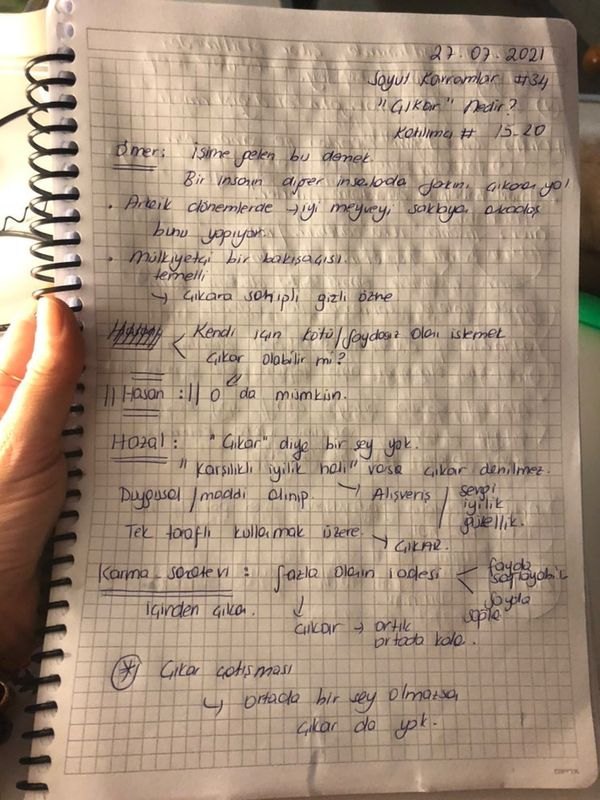 27.07.2021
Soyut Kavramlar #34
"Çıkar" Nedir?
Katılımcı # 15-20
Ömer: işime gelen bu demek.
Bir insanın diğer insalada yakını çıkara yol
• Arkaik dönemlerde → iyi meyveyi saklaya arkadaş
bunu yapıyor.
• Mülkiyetçi bir bakışaçısı.
temelli
↳ Çıkara sahipli gizli özne
Kendi için kötü/faydasız olanı istemek
çıkar olabilir mi?
|| Hasan :|| O da mümkün.
Hazal: "Çıkar" diye bir şey yok.
"karşılıklı iyilik hali" varsa çıkar denilmez.
Duygusal / maddi alınıp. ↳ Alışveriş / sevgi
iyilik
güzellik.
Tek taraflı kullanmak üzere. ↳ ÇIKAR.
Karma-      : fazla olanın iadesi < fayda
sağlayabilir
fayda
sağla.
içinden çıkar. ↓
Çıkar → artık
ortada kala.
* Çıkar çatışması
↳ ortada bir şey olmazsa
çıkar da yok.